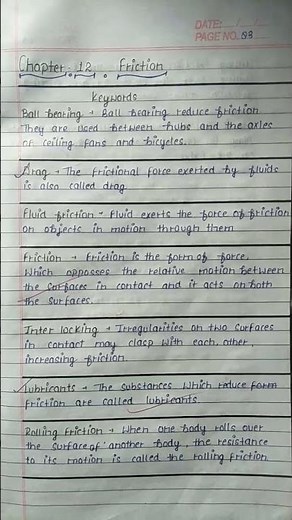 DATE: / /
PAGE NO. 98
Chapter - 12 . Friction
Keywords
Ball bearing → Ball bearing reduce friction
They are used between hubs and the axles
of ceiling fans and bicycles.
Drag → The frictional force exerted by fluids
is also called drag.
Fluid friction → Fluid exerts the force of friction
on objects in motion through them
Friction → Friction is the form of force.
Which opposses the relative motion between
the surfaces in contact and it acts on both
the surfaces.
Inter locking → Irregularities on two surfaces
in contact may clasp with each other,
increasing friction.
Lubricants → The substances which reduce form
friction are called lubricants.
Rolling friction → When one body rolls over
the surface of another body, the resistance
to its motion is called the rolling friction